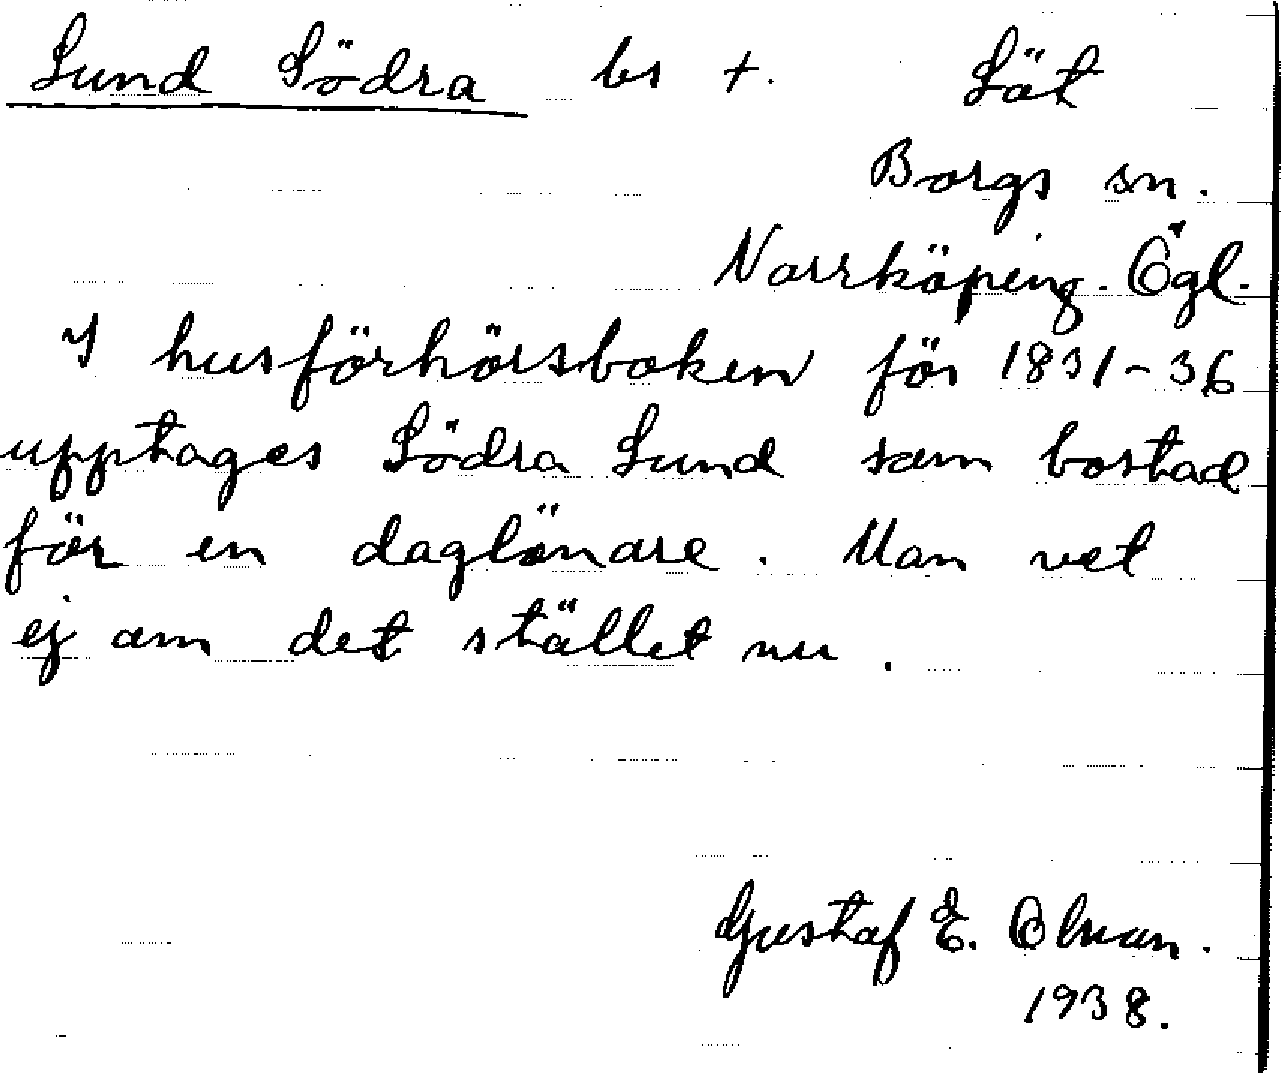 Lund Södra bs +. Löt
Borgs sn.
Norrköping. Ögl.
I husförhörsboken för 1831-36
upptages Södra Lund som bostad
för en daglönare. Man vet
ej om det stället nu.
Gustaf E. 
1938.